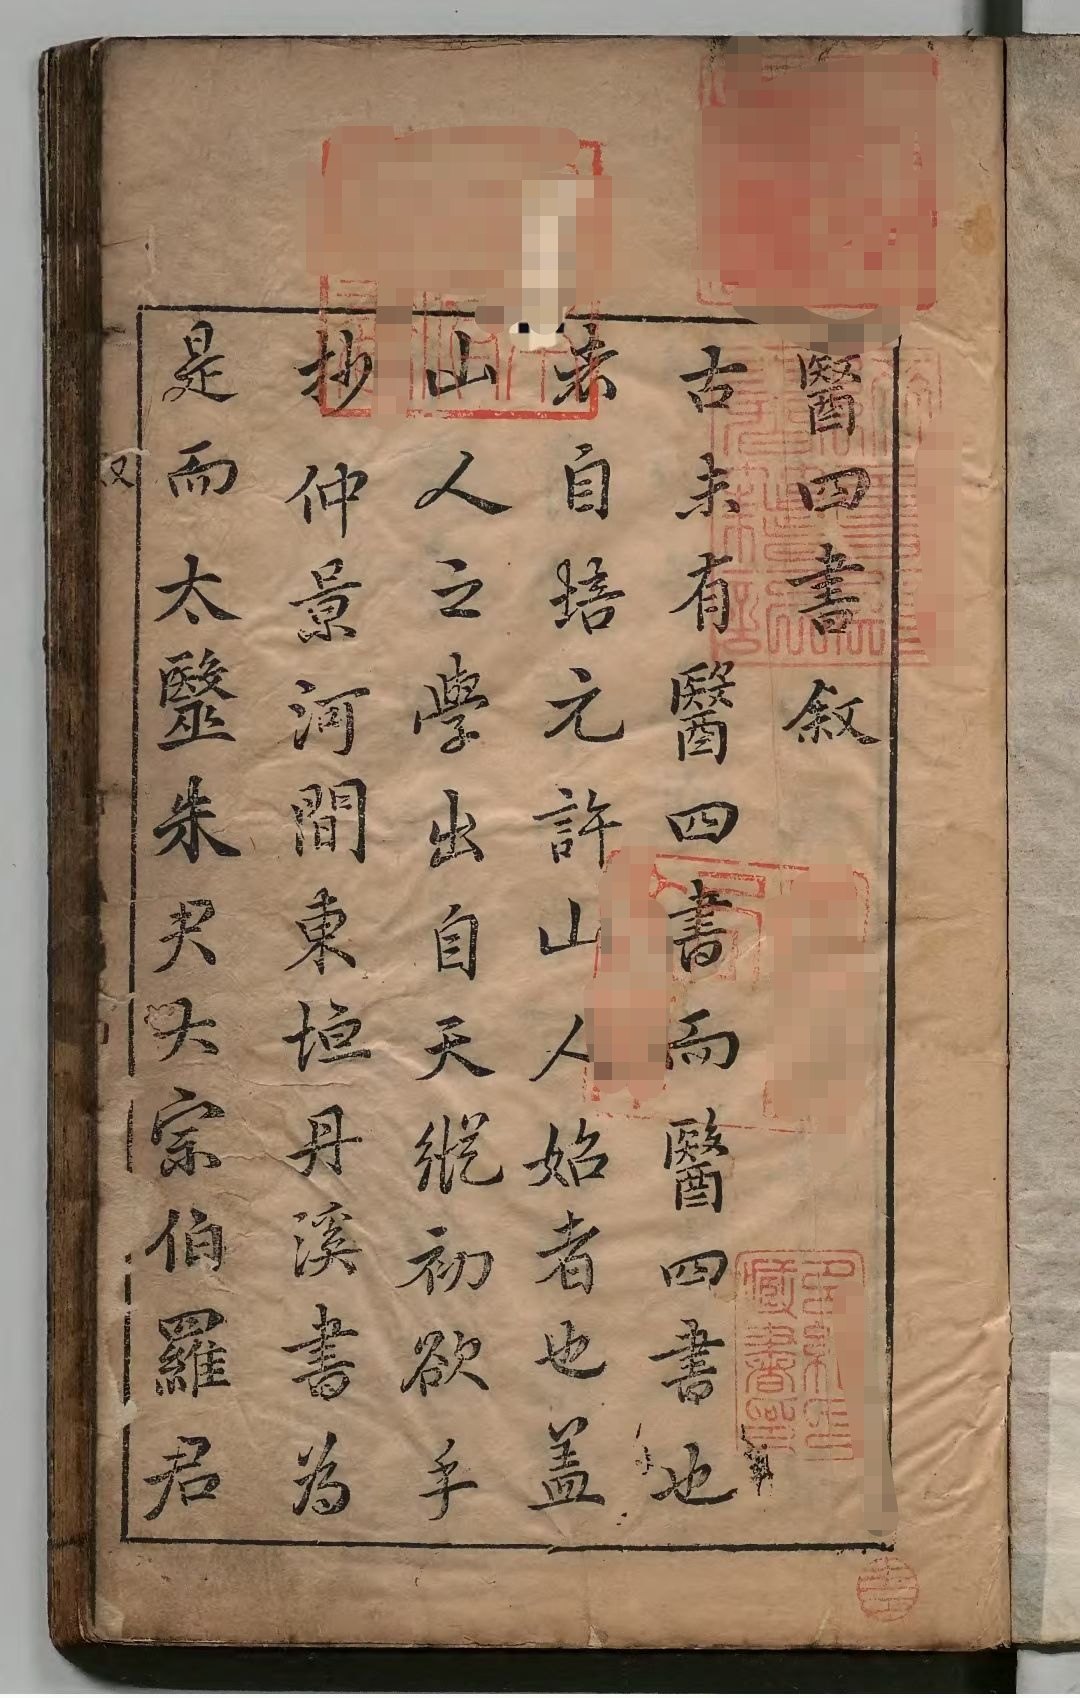 醫四書敘
古未有醫四書而醫四書也
者自培元許山人始者也蓋
山人之學出自天縱初欲手
抄仲景河間東垣丹溪書為
是而太毉朱君大宗伯羅君